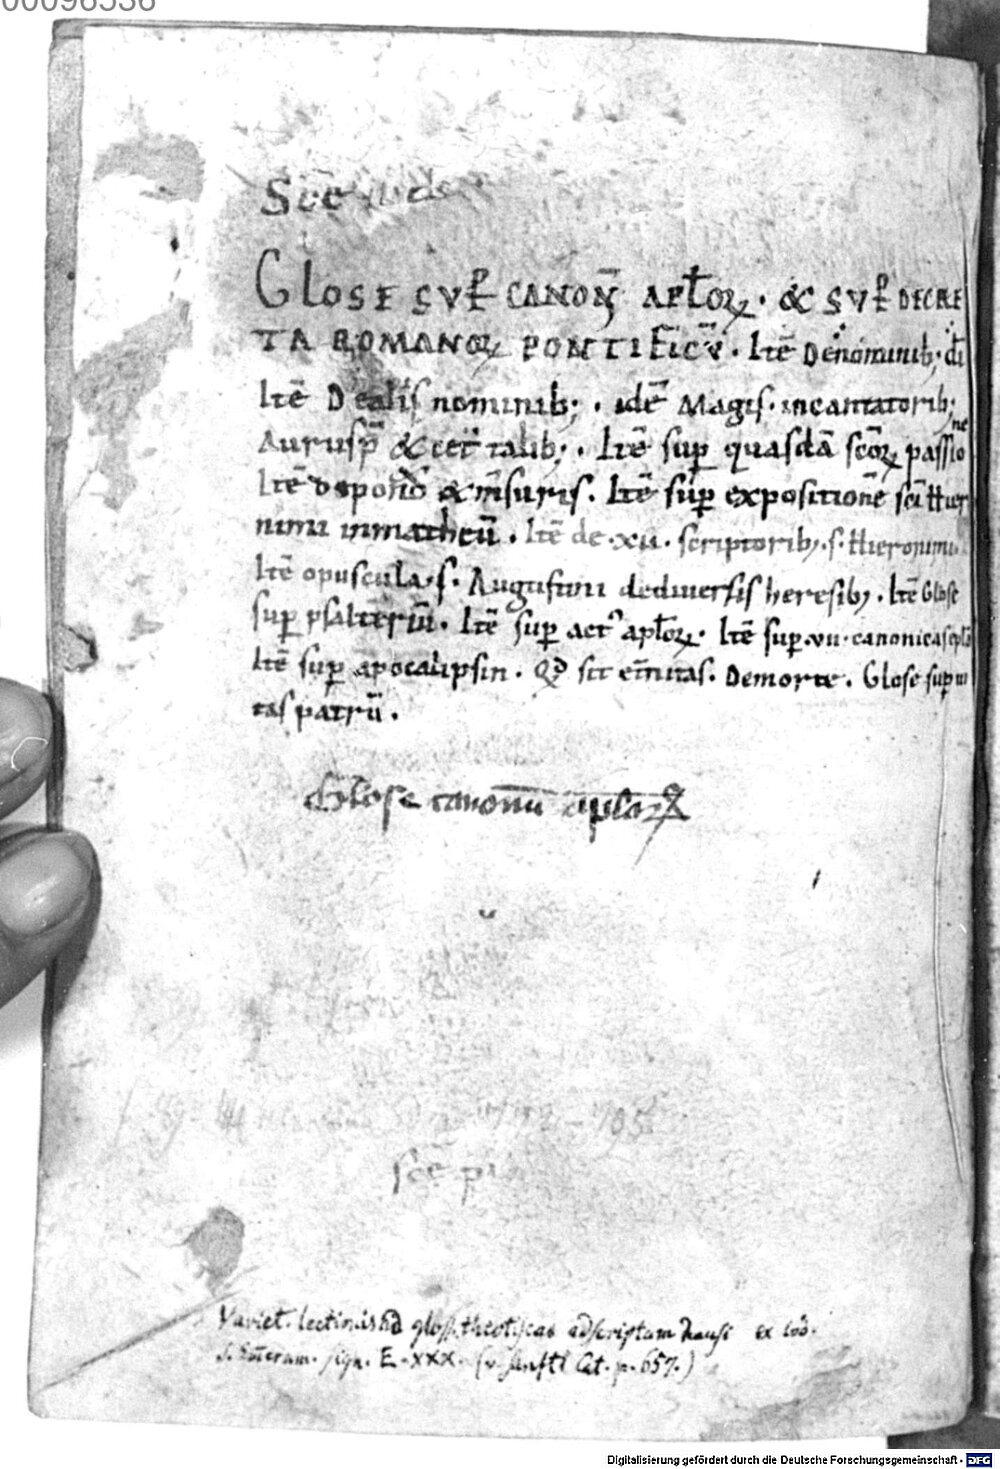 00096536
Sċē
GLOSE SVꝑ CANONŪ APŁOꝜ · & SVꝑ DECRE
TA ROMANOꝜ PONTIFICŪ · Itē De nominib; di
Itē De aliis nominib; · idē Magis · incantatorib;
Aurusp̄ & cet̄ talib; · Itē sup̱ quasdā scōꝝ passio
ne
Itē de pond̄ & m̄suris · Itē sup̱ expositionē sc̄i Hier
nimi in matheū · Itē de · xii · scriptorib; · s · Hieronimi
Itē opuscula · s · Augustini de diuersis heresib; · Itē Glose
sup̱ psalteriū · Itē sup̱ act᷒ apłoꝝ · Itē sup̱ · vii · canonicas ep̄las
Itē sup̱ apocalipsin · Qd̄ sit et̄nitas · De morte · Glose sup̱ ui
tas patrū ·
Glose canonū apłoꝝ
sċē p
Variet. lectionis ad gloss. theotiscas adscriptam hausi ex cod.
S. Emeram. sign. E. XXX. (v. Sanftl Cat. p. 657.)
Digitalisierung gefördert durch die Deutsche Forschungsgemeinschaft - DFG